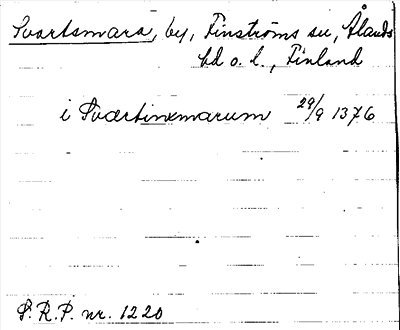 Svartsmara, by, Finströms sn, Ålands
hd o. l., Finland
i Svartinxmarum 29/9 1376
S.R.P. nr. 1220